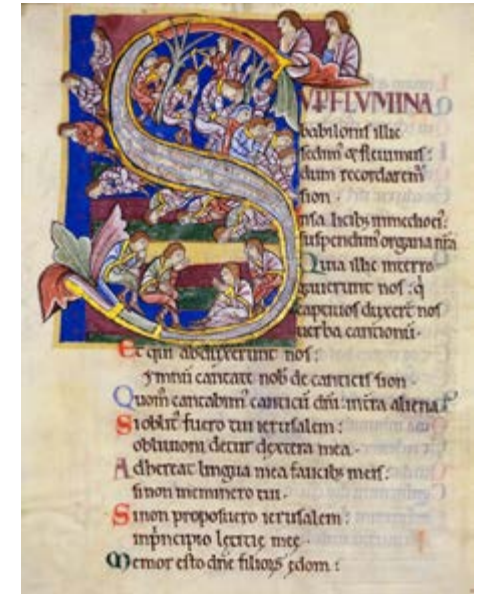 SUP FLUMINA
babilonis illic
sedim⁊ & fleuimus:
dum recordarem⁊
sion.
In salicib; in medio ei⁊:
suspendim⁊ organa nr̄a
Quia illic interro
gauerunt nos: q̇
captiuos duxer̄t nos
uerba cantionū.
Et qui abduxerunt nos:
ymnū cantate nob̄ de canticis sion.
Quom̄ cantabim⁊ canticū dn̄i: in tr̄a aliena
Si oblit⁊ fuero tui ierusalem:
obliuioni detur dextera mea.
Adhereat lingua mea faucib; meis:
si non meminero tui.
Si non proposuero ierusalem:
in principio lętitię męę.
Memor esto dn̄e filioꝝ edom: